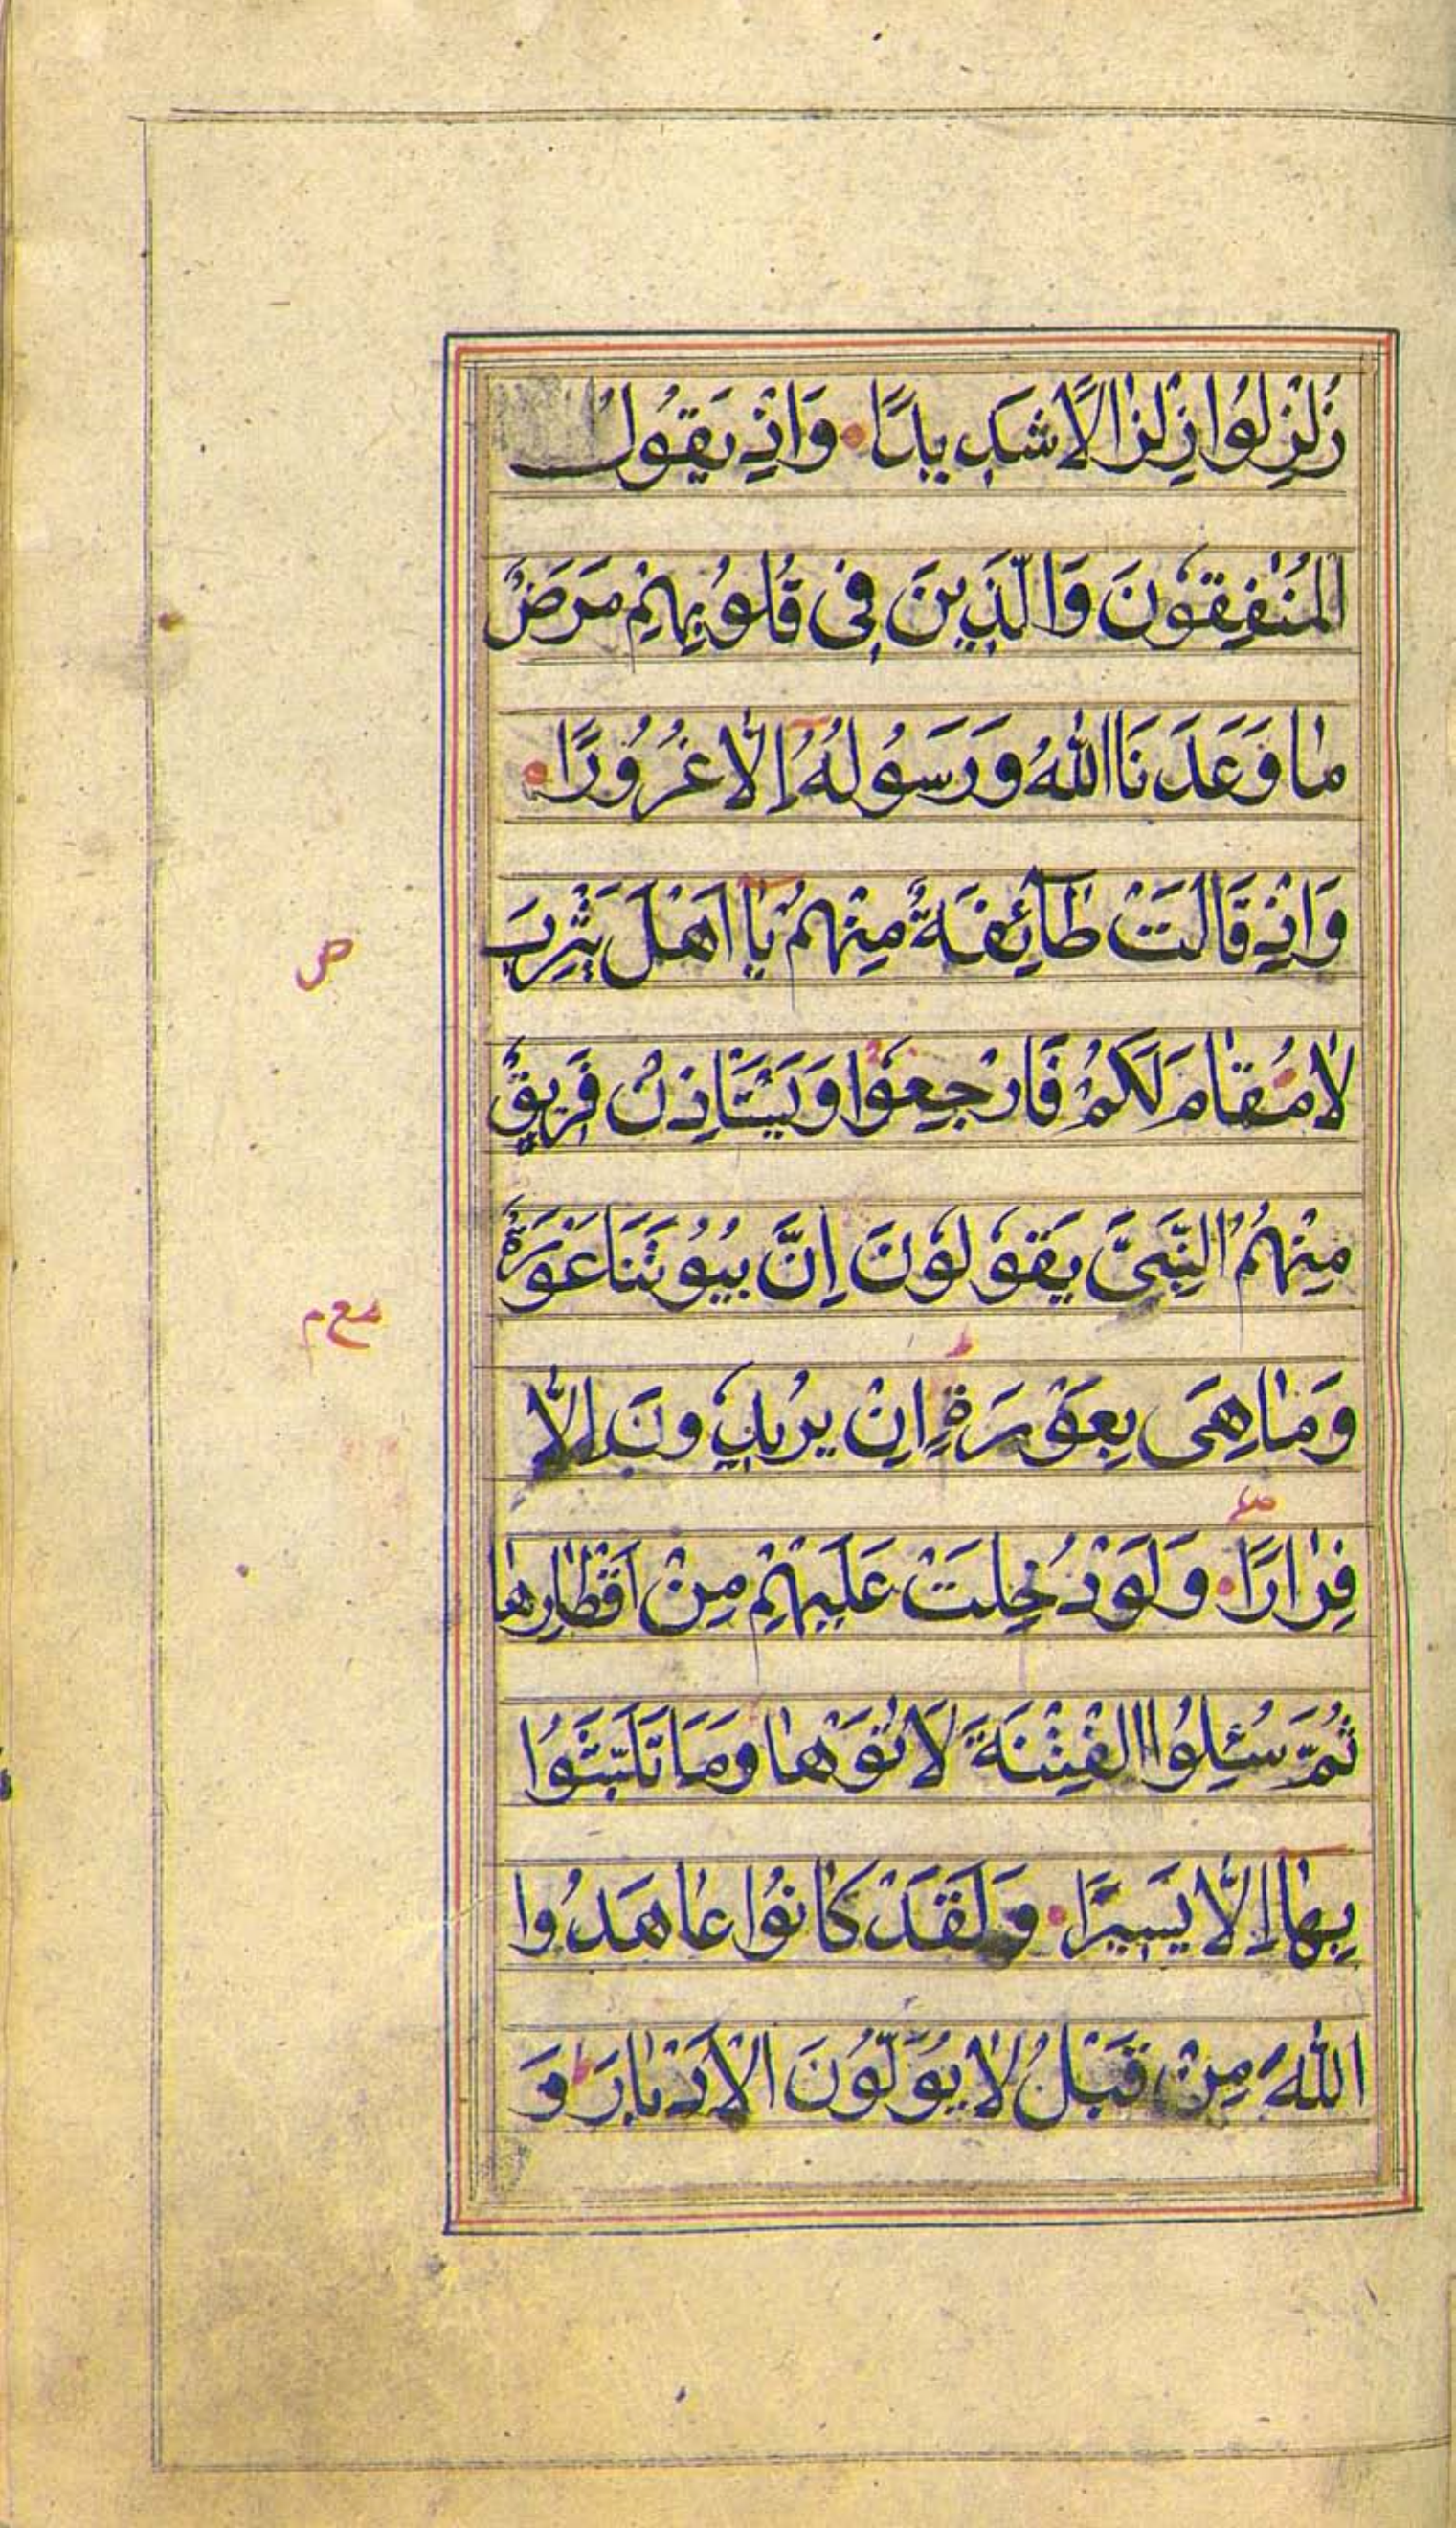 زُلْزِلُوا زِلْزَالًا شَدِيدًا وَاِذْ يَقُولُ
الْمُنٰفِقُونَ وَالَّذِينَ فِى قُلُوبِهِمْ مَرَضٌ
مٰا وَعَدَنَا اللّٰهُ وَرَسُولُهُ اِلَّا غُرُورًا
وَاِذْ قَالَتْ طَائِفَةٌ مِنْهُمْ يٰا اَهْلَ يَثْرِبَ
لٰا مُقٰامَ لَكُمْ فَارْجِعُوا وَيَسْتَاْذِنُ فَرِيقٌ
مِنْهُمُ النَّبِىَّ يَقُولُونَ اِنَّ بُيُوتَنَا عَوْرَةٌ
وَمٰا هِىَ بِعَوْرَةٍ اِنْ يُرِيدُونَ اِلَّا
فِرٰارًا وَلَوْ دُخِلَتْ عَلَيْهِمْ مِنْ اَقْطٰارِهٰا
ثُمَّ سُئِلُوا الْفِتْنَةَ لَاٰتَوْهٰا وَمَا تَلَبَّثُوا
بِهٰا اِلَّا يَسِيرًا وَلَقَدْ كٰانُوا عٰاهَدُوا
اللّٰهَ مِنْ قَبْلُ لٰا يُوَلُّونَ الْاَدْبٰارَ وَ
ص
مع م